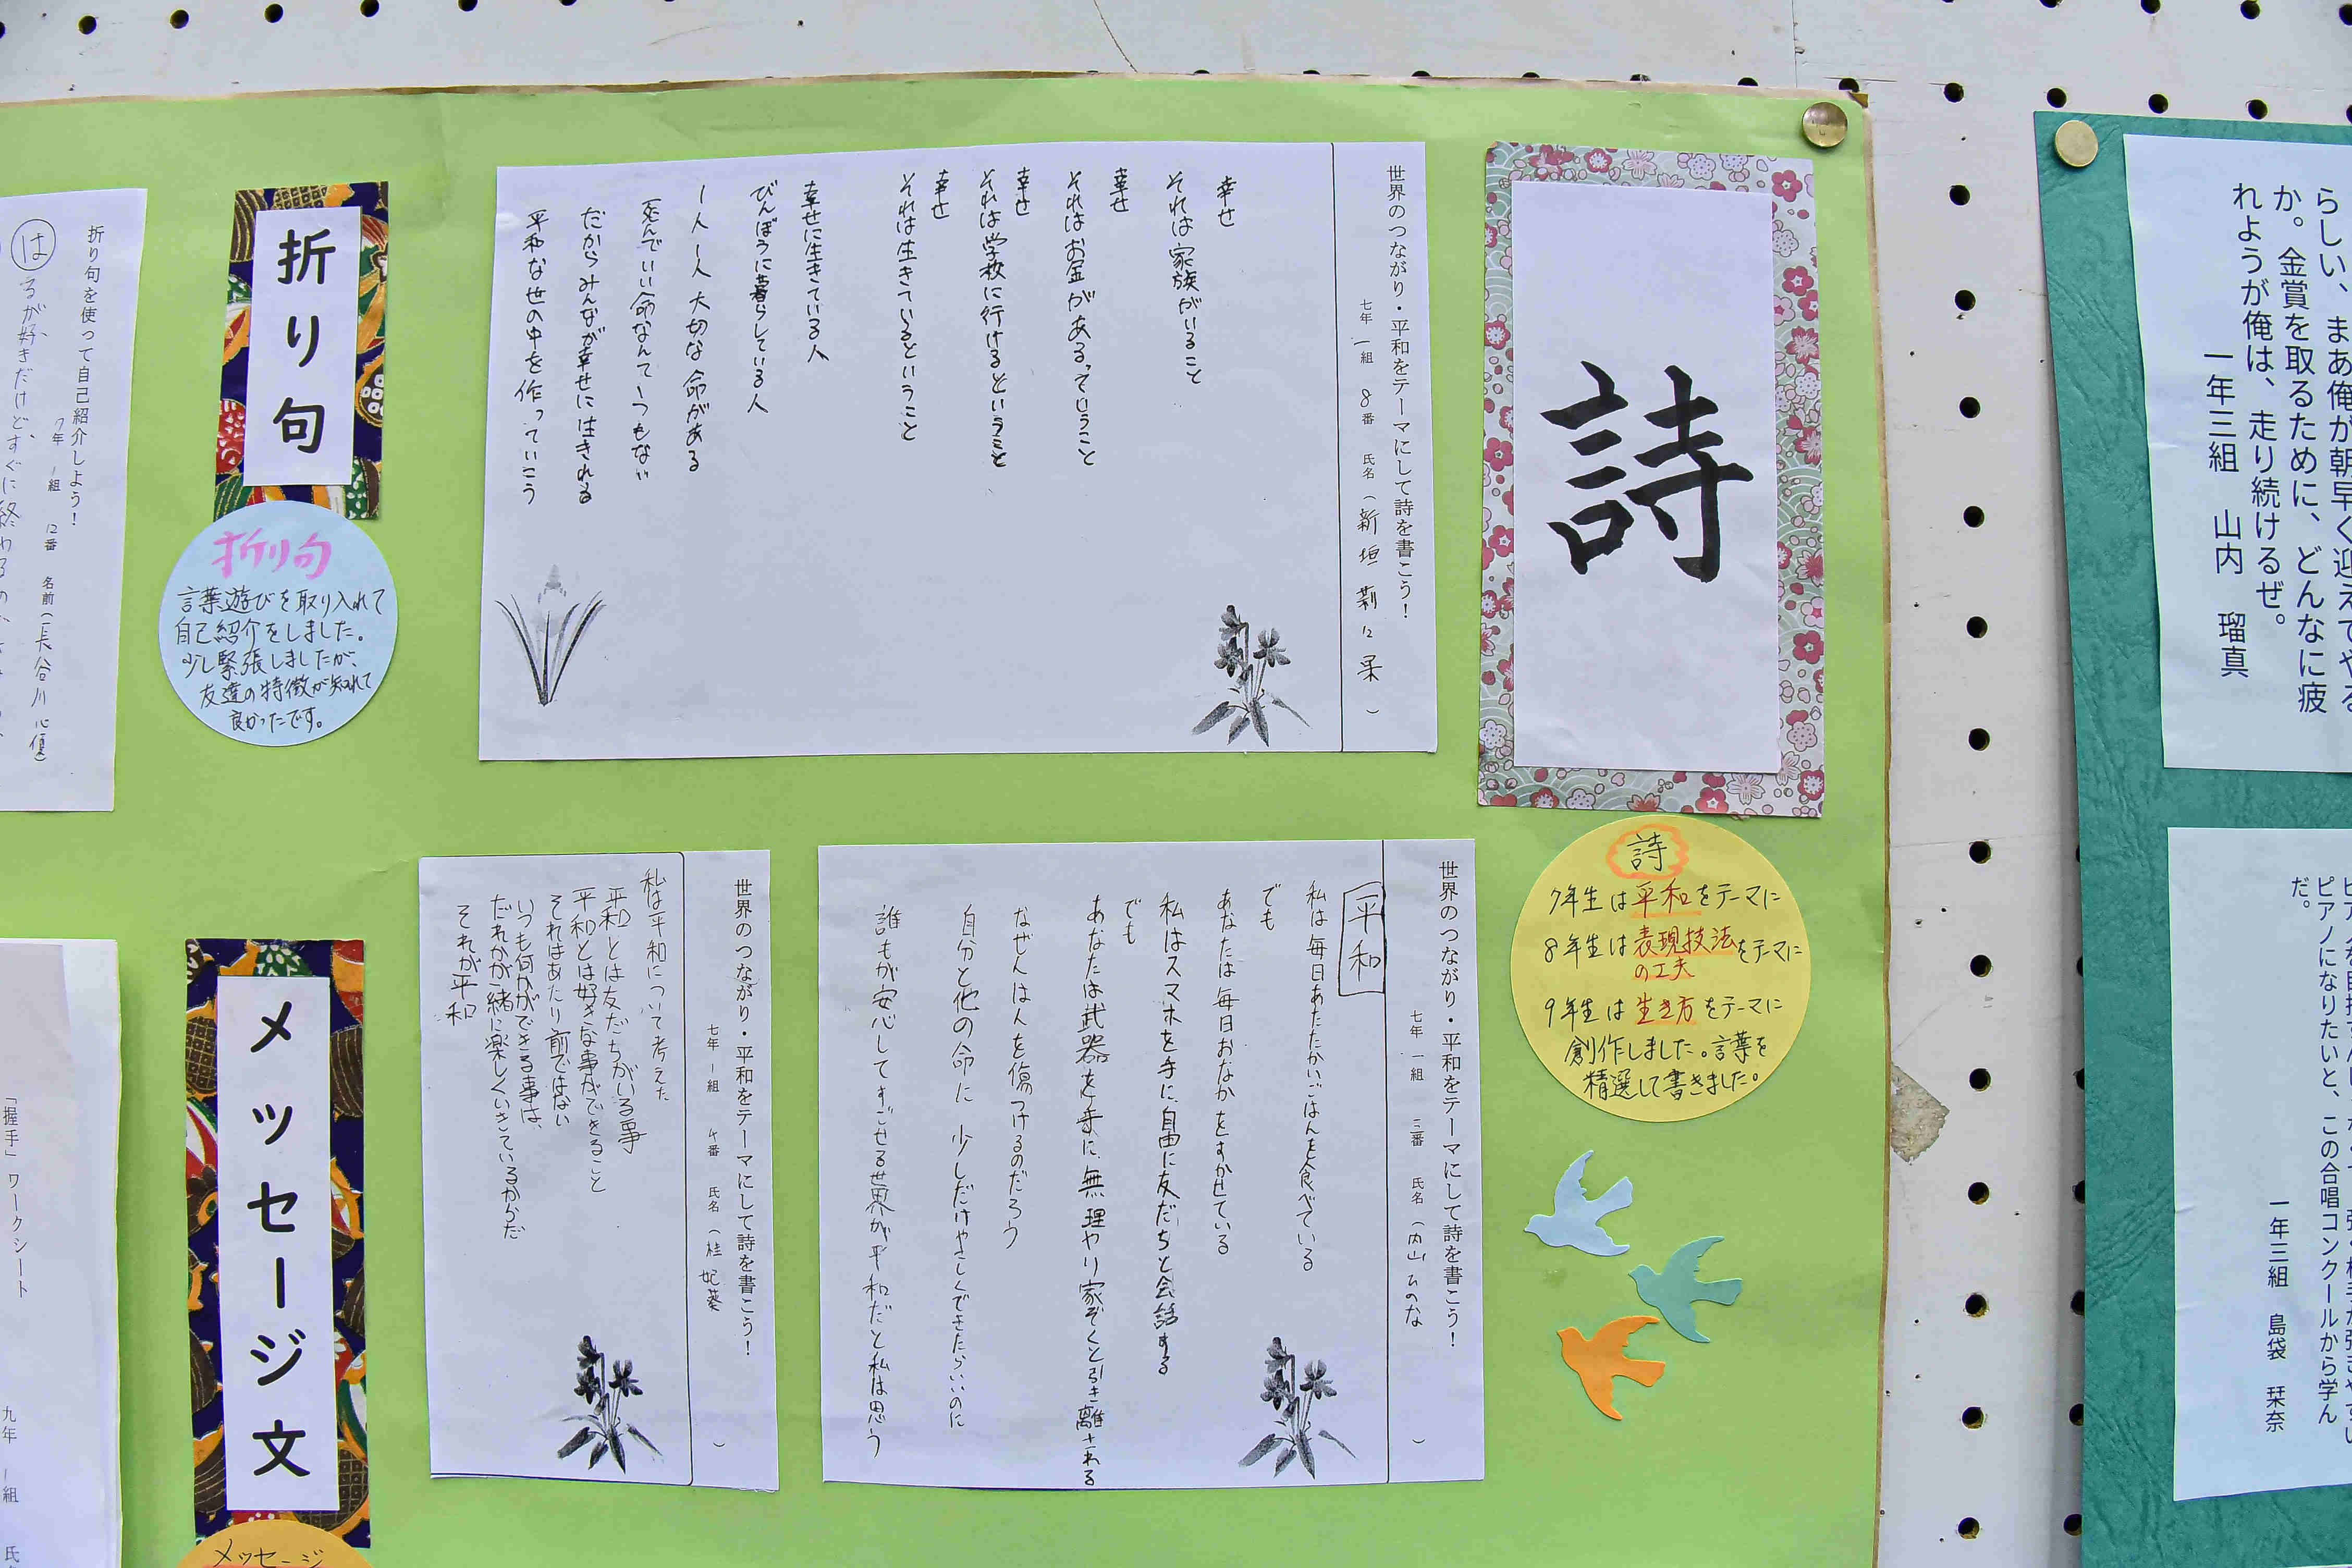 らしい、まあ俺が朝早く迎えてやる
か。金賞を取るために、どんなに疲
れようが俺は、走り続けるぜ。
一年三組 山内 瑠真
ピアノになりたいと、この合唱コンクールから学ん
だ。
一年三組 島袋 栞奈
詩
詩
7年生は平和をテーマに
8年生は表現技法
の工夫
をテーマに
9年生は生き方をテーマに
創作しました。言葉を
精選して書きました。
世界のつながり・平和をテーマにして詩を書こう!
七年 一組 8番 氏名(新垣 莉 に 柔)
幸せ
それは家族がいること
幸せ
それはお金があるっていうこと
幸せ
それは学校に行けるということ
幸せ
それは生きているということ
幸せに生きている人
びんぼうに暮らしている人
一人一人大切な命がある
死んでいい命なんて一つもない
だからみんなが幸せに生きれる
平和な世の中を作っていこう
世界のつながり・平和をテーマにして詩を書こう!
七年 一組 三番 氏名(内山 ひのな)
平和
私は毎日あたたかいごはんを食べている
でも
あなたは毎日おなかをすかせている
私はスマホを手に、自由に友だちと会話する
でも
あなたは武器を手に、無理やり家ぞくと引き離される
なぜ人は人を傷つけるのだろう
自分と他の命に少しだけやさしくできたらいいのに
誰もが安心してすごせる世界が平和だと私は思う
世界のつながり・平和をテーマにして詩を書こう!
七年 1組 ケ番 氏名(桂 妃葵)
私は平和について考えた
平和とは友だちがいる事
平和とは好きな事ができること
それはあたり前ではない
いつも何かができる事は、
だれかが一緒に楽しくいきているからだ
それが平和
折り句
折り句
言葉遊びを取り入れて
自己紹介をしました。
少し緊張しましたが、
友達の特徴が知れて
良かったです。
折り句を使って自己紹介しよう!
7年 1組 12番 名前(長谷川 心優)
はるが好きだけど、すぐに終わるの
メッセージ文
メッセージ
「握手」ワークシート
九年 1組 氏